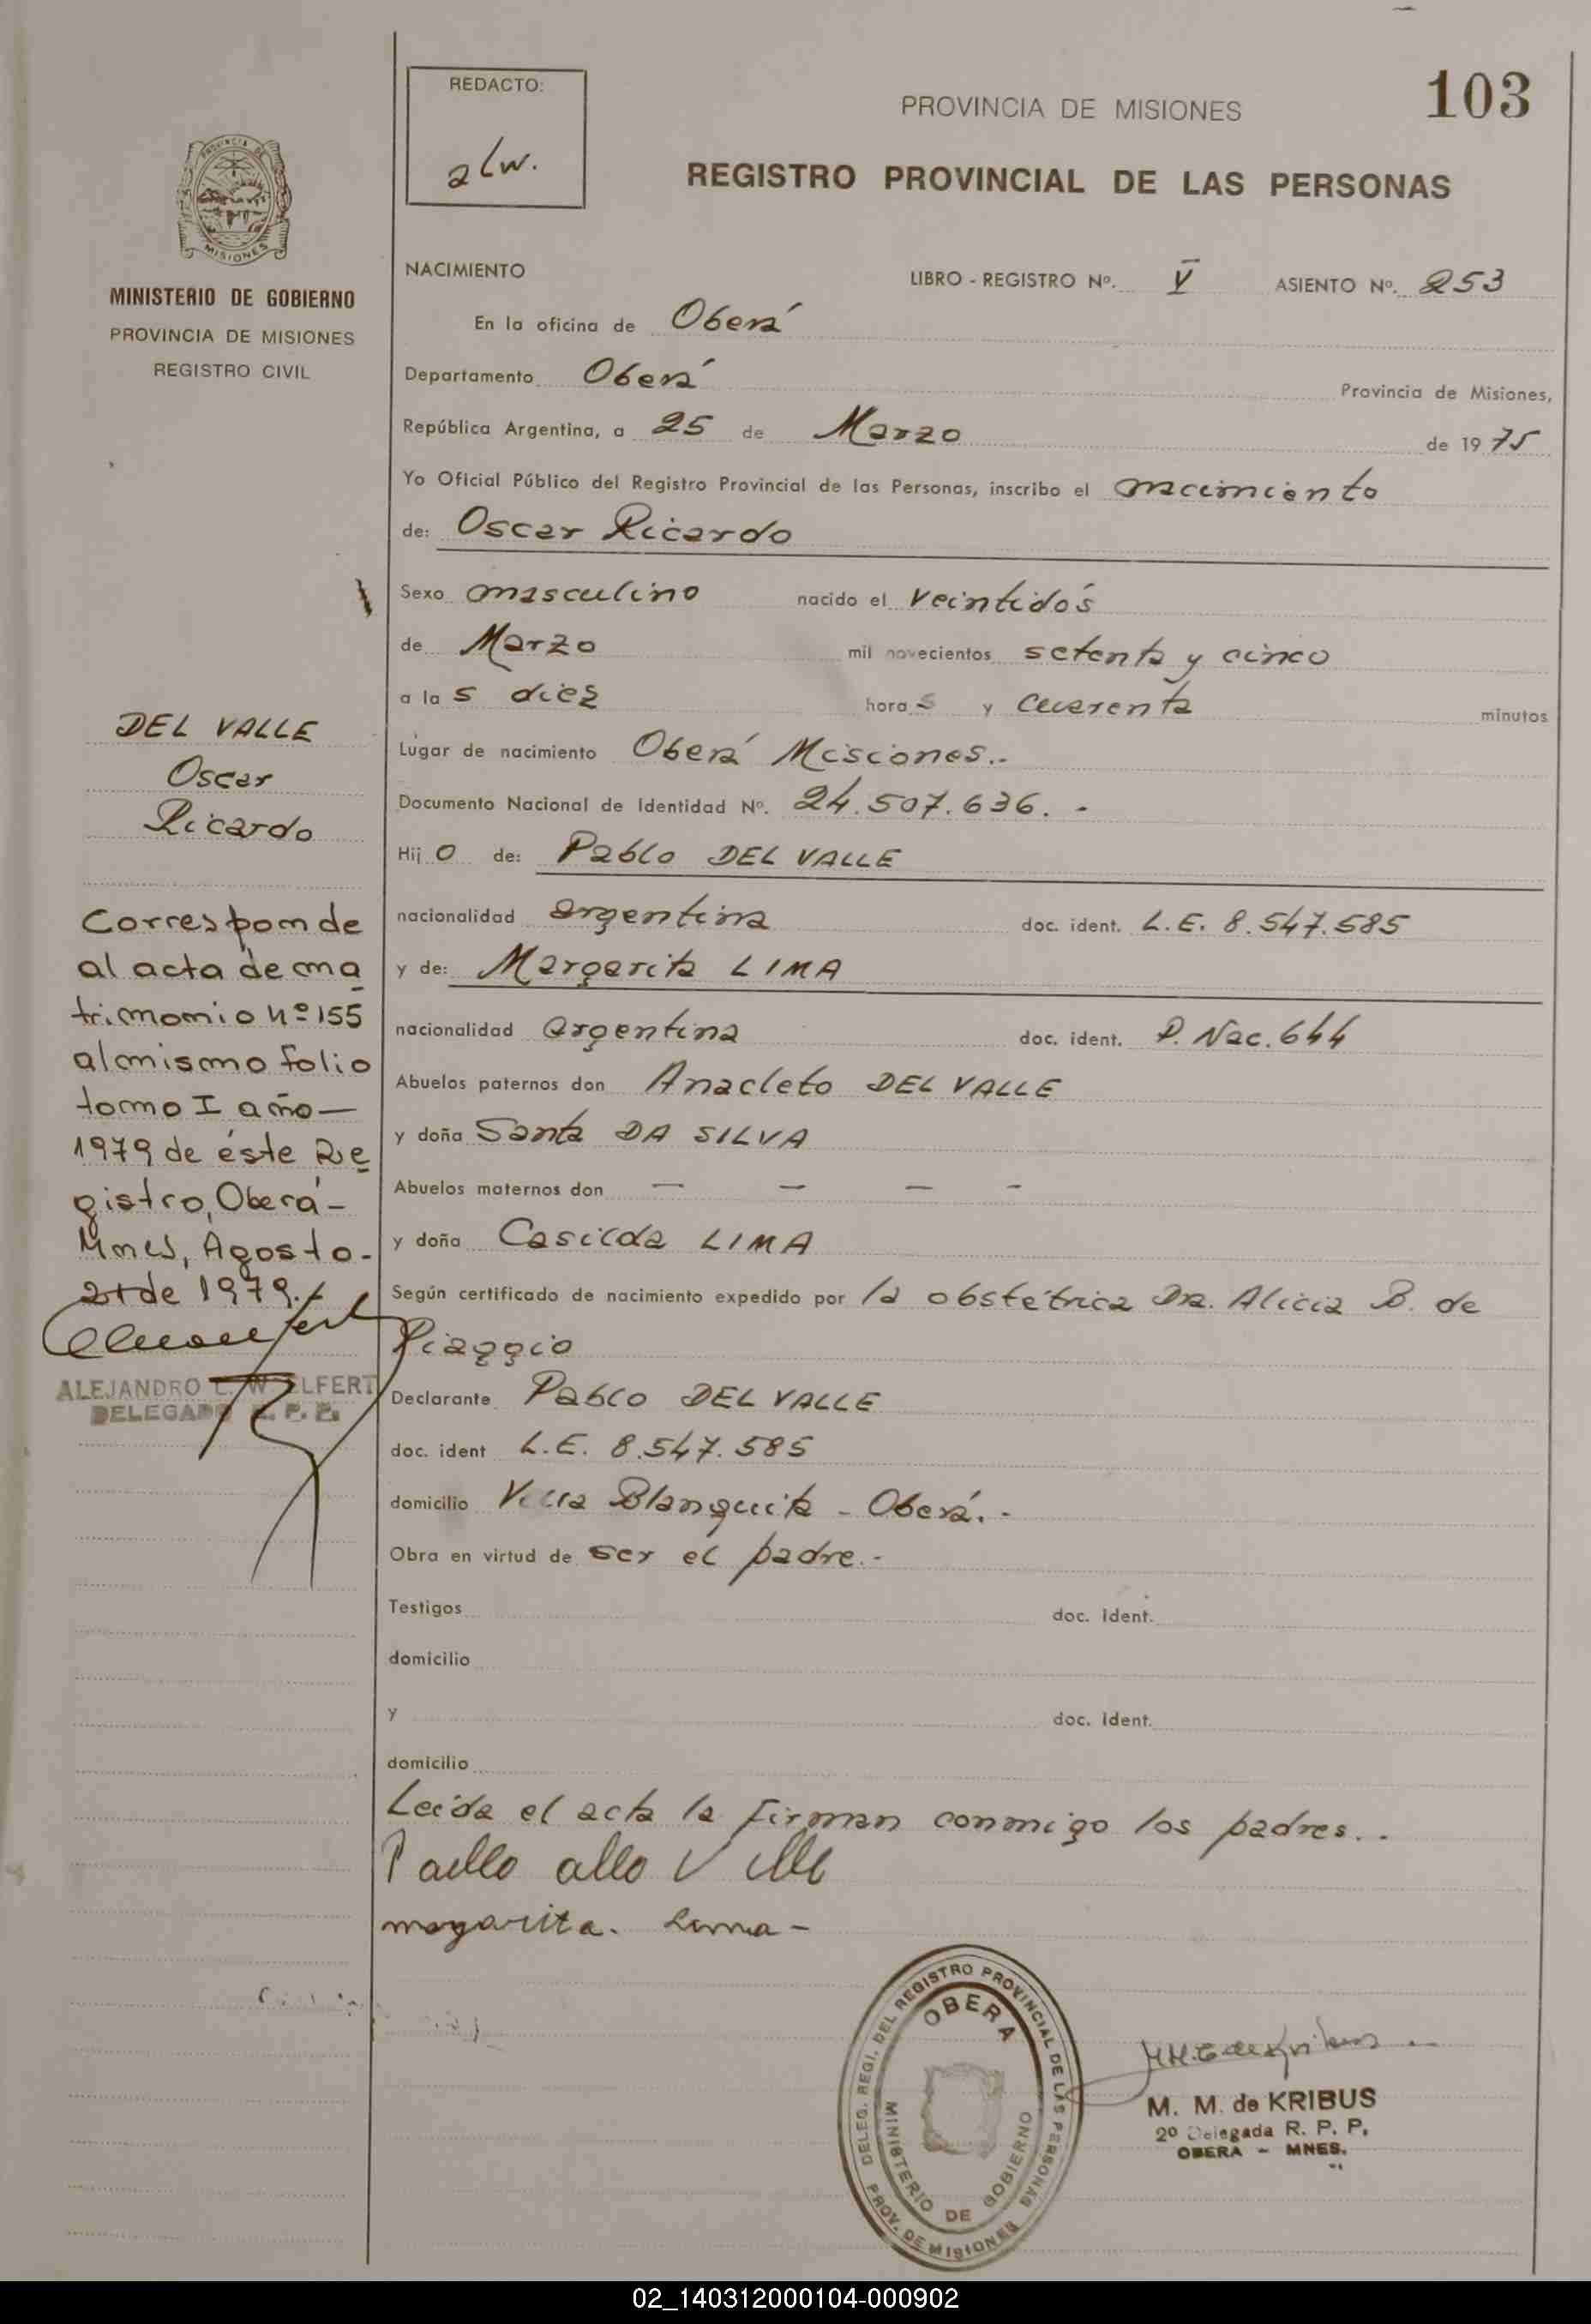 REDACTO:
alw.
PROVINCIA DE MISIONES
103
REGISTRO PROVINCIAL DE LAS PERSONAS
PROVINCIA DE
MISIONES
MINISTERIO DE GOBIERNO
PROVINCIA DE MISIONES
REGISTRO CIVIL
NACIMIENTO LIBRO - REGISTRO Nº. V ASIENTO Nº. 253
En la oficina de Oberá
Departamento Oberá Provincia de Misiones,
República Argentina, a 25 de Marzo de 1975
Yo Oficial Público del Registro Provincial de las Personas, inscribo el nacimiento
de: Oscar Ricardo
Sexo masculino nacido el veintidós
de Marzo mil novecientos setenta y cinco
a las diez horas y cuarenta minutos
Lugar de nacimiento Oberá Misiones.-
Documento Nacional de Identidad Nº. 24.507.636.-
Hijo de: Pablo DEL VALLE
nacionalidad argentina doc. ident. L.E. 8.547.585
y de: Margarita LIMA
nacionalidad argentina doc. ident. P. Nac. 644
Abuelos paternos don Anacleto DEL VALLE
y doña Santa DA SILVA
Abuelos maternos don — — — -
y doña Casilda LIMA
Según certificado de nacimiento expedido por la obstétrica Da. Alicia B. de
Piaggio
Declarante Pablo DEL VALLE
doc. ident L.E. 8.547.585
domicilio Villa Blanquita - Oberá.-
Obra en virtud de ser el padre.-
Testigos doc. ident.
domicilio
y doc. ident.
domicilio
Leída el acta la firman conmigo los padres..
margarita. Lima-
DEL VALLE
Oscar
Ricardo
Corresponde
al acta de ma
trimonio nº 155
al mismo folio
tomo I año—
1979 de éste Re
gistro, Oberá-
Mnes, Agosto-
21 de 1979.-
ALEJANDRO L. W. ELFERT
DELEGADO R. P. P.
DELEG. REGI. DEL REGISTRO PROVINCIAL DE LAS PERSONAS
PROV. DE MISIONES
OBERA
MINISTERIO DE GOBIERNO
M. M. de KRIBUS
2º Delegada R. P. P.
OBERA - MNES.
02_140312000104-000902